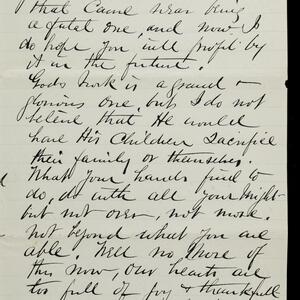 that came near being
a fatal one, and now I
do hope you will profit by
it in the future.
Gods work is a grand &
glorious one, but I do not
believe that He would
have His Children Sacrifice
their family or themselves.
What your hands find to
do, do with all your might-
but not over, not more.
not beyond what you are
able. Well no more of
this now, our hearts are
too full of joy & thankfull